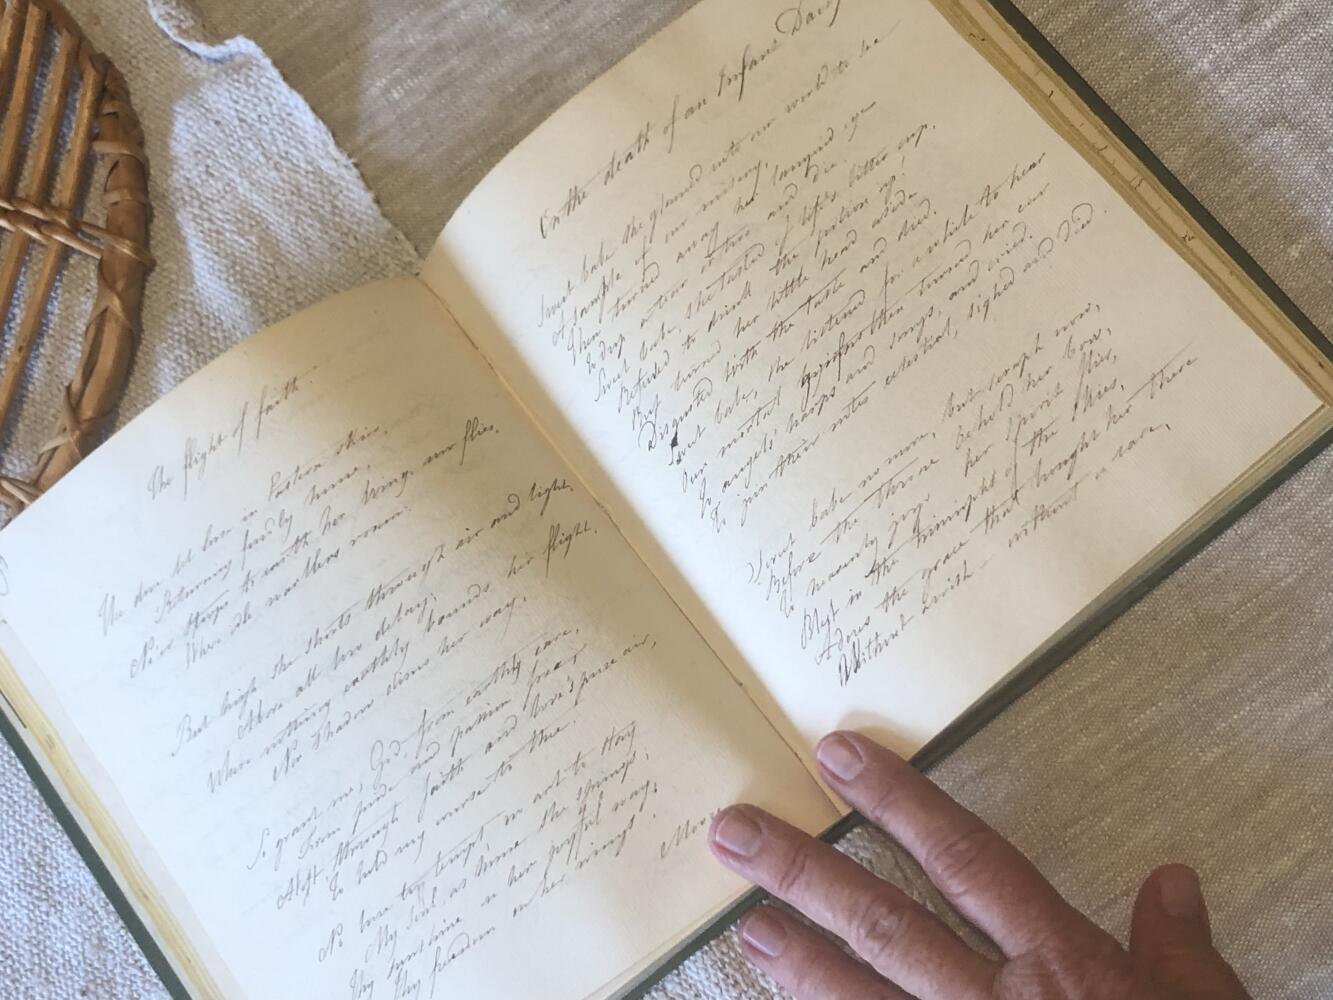 The flight of faith.
The dove let loose in Eastern skies,
Returning fondly home,
Ne'er stoops to earth her wing, nor flies
Where idle warblers roam.
But high she shoots through air and light,
Above all low delay;
Where nothing earthly bounds her flight,
Nor shadow dims her way.
So grant me, God, from earthly care,
From pride and passion free,
Aloft, through faith and love's pure air,
To hold my course to thee.
No lure to tempt, no art to stay
My soul, as home she springs;
Thy sunshine on her joyful way,
Thy freedom on her wings!
On the death of an Infant
Sweet babe she glanced into our world to see
A sample of our misery,
Then turned away her languid eye
To drop a tear or two and die.
Sweet babe, she tasted of life's bitter cup,
Refused to drink the potion up!
But turned her little head aside
Disgusted with the taste and died.
Sweet babe, she listened for a while to hear
Our mortal then turned her ear
To angels' harps and songs, and cried
To join their notes celestial, sighed and died
Sweet babe no more, but seraph now,
Before the throne behold her bow,
To heavenly joys her spirit flies,
Blest in the triumph of the skies,
Adores the grace that brought her there
Without a wish without a care,